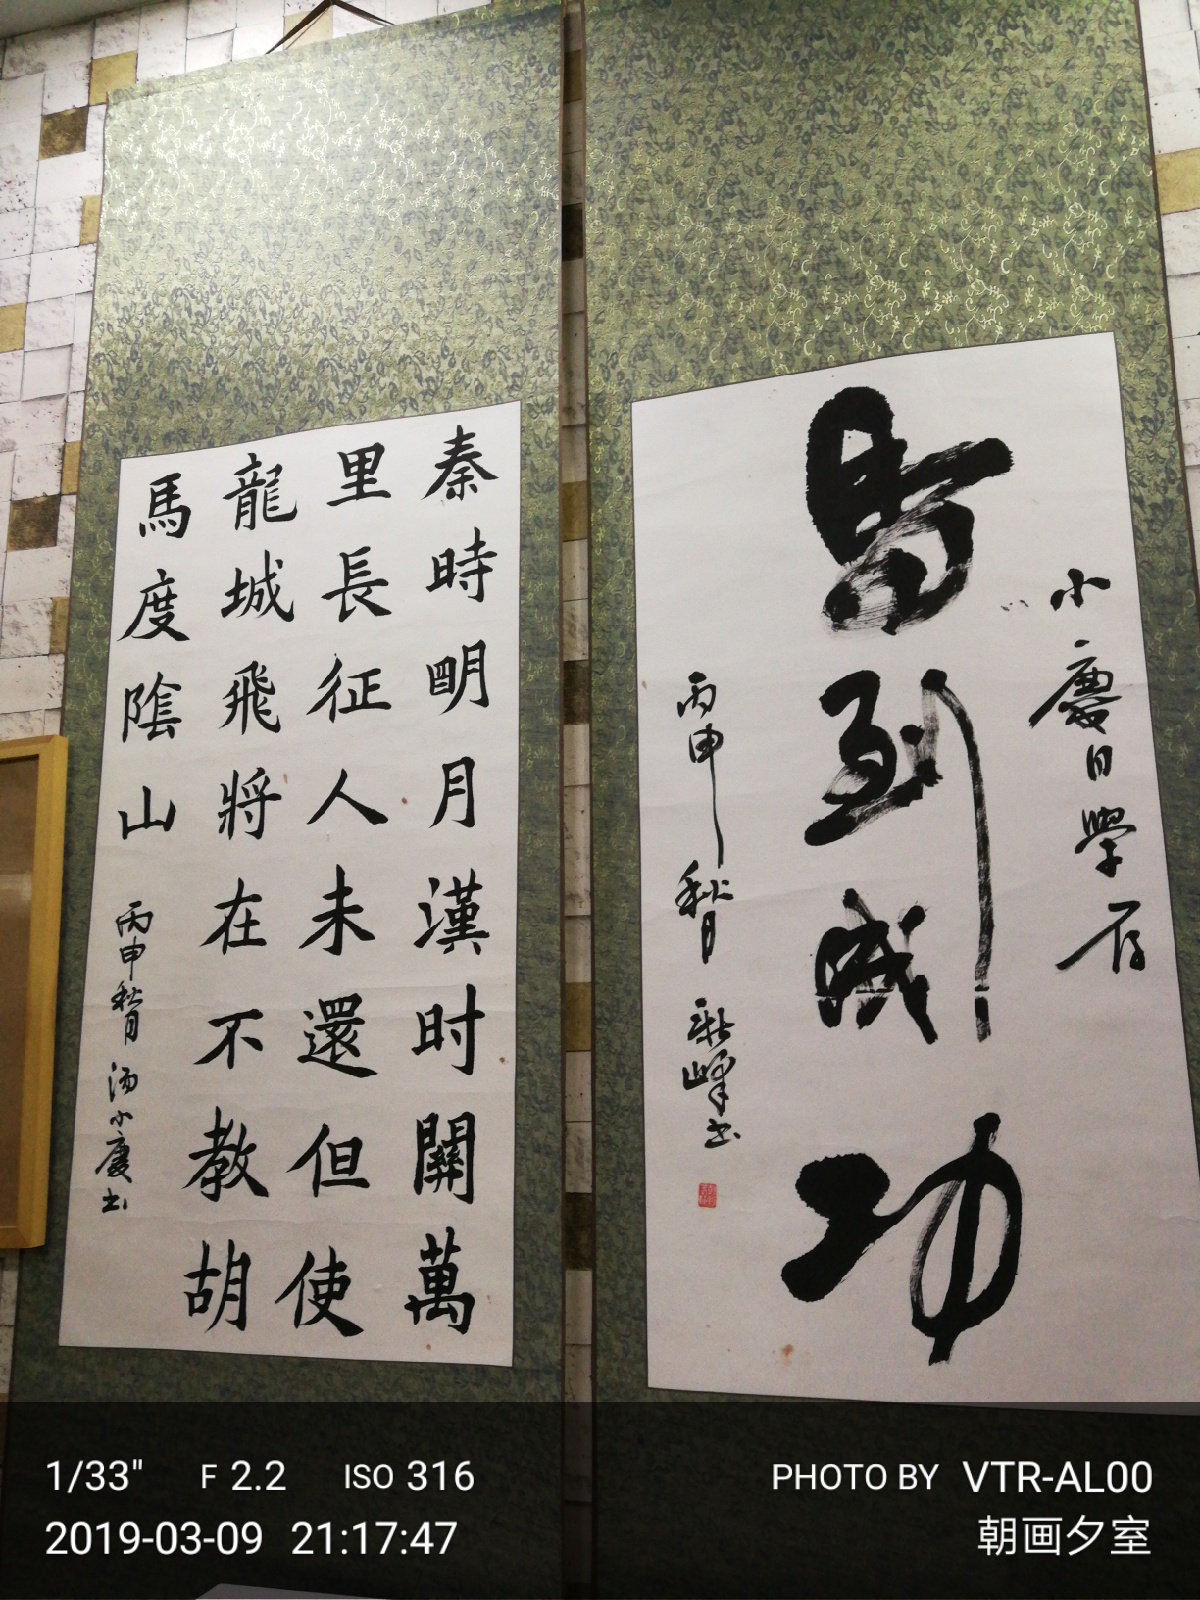 小慶同學存
馬到成功
丙申秋月 新峰书
秦時明月漢时關萬
里長征人未還但使
龍城飛將在不教胡
馬度陰山
丙申秋月 汤小慶书
1/33" F 2.2 ISO 316
2019-03-09 21:17:47
PHOTO BY VTR-AL00
朝画夕室